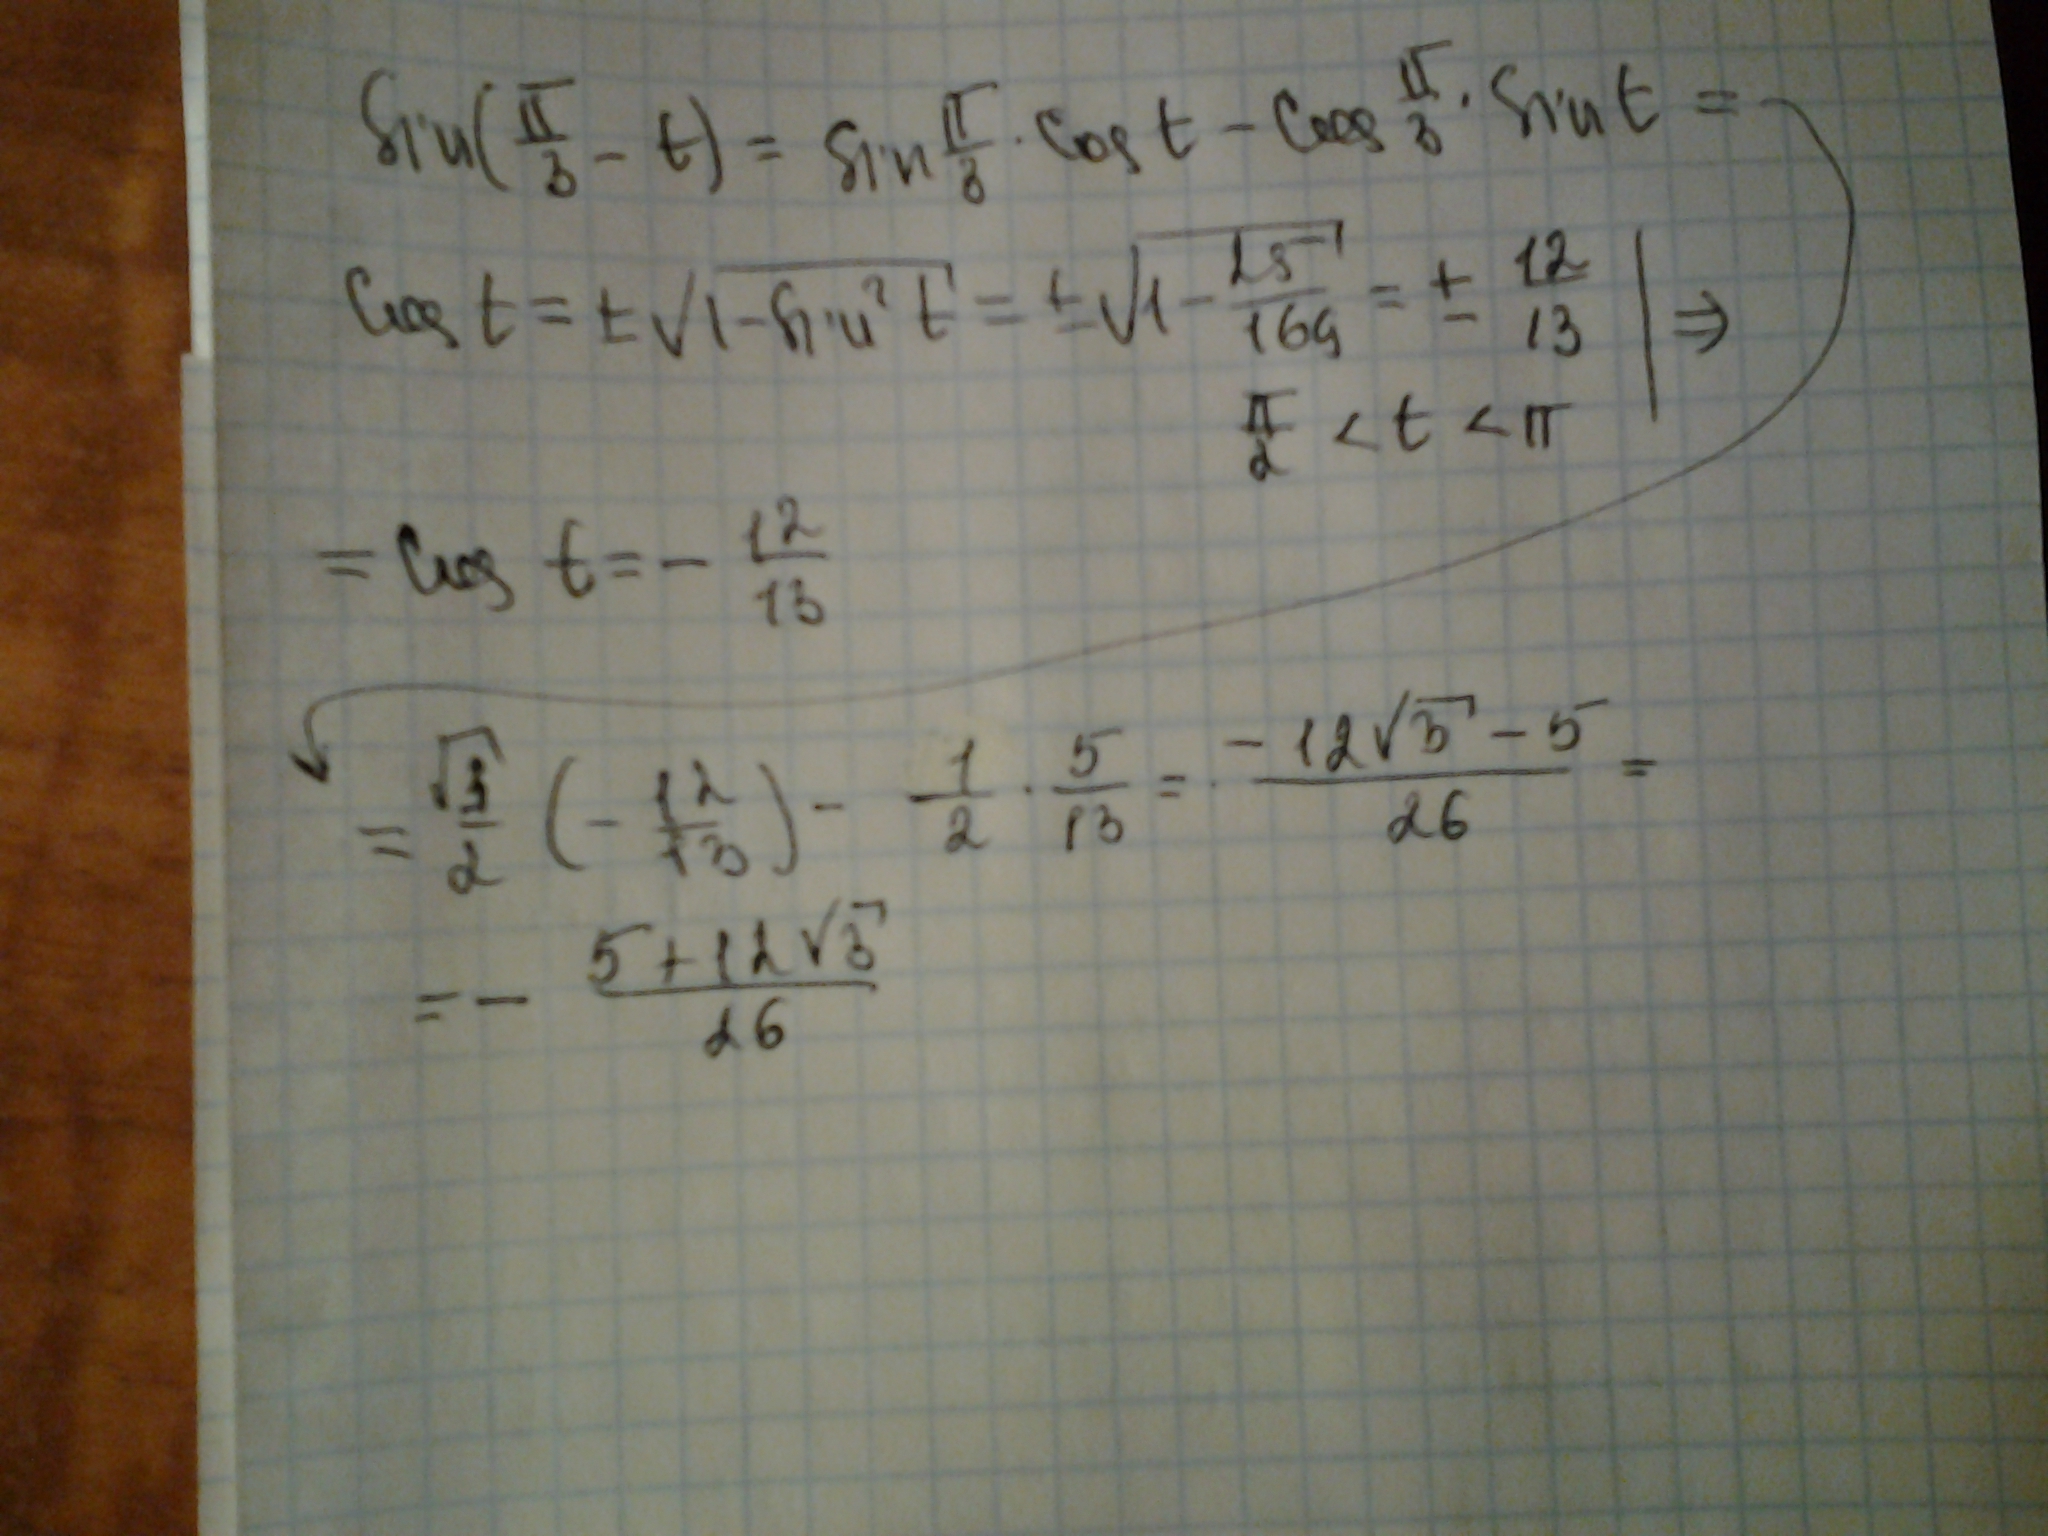 sin(π/3 - t) = sin π/3 · cos t - cos π/3 · sin t =
cos t = ±√(1-sin² t) = ±√(1 - 25/169) = ± 12/13 | ⇒
π/2 < t < π
= cos t = - 12/13
= √3/2 (- 12/13) - 1/2 · 5/13 = (-12√3 - 5)/26 =
= - (5+12√3)/26